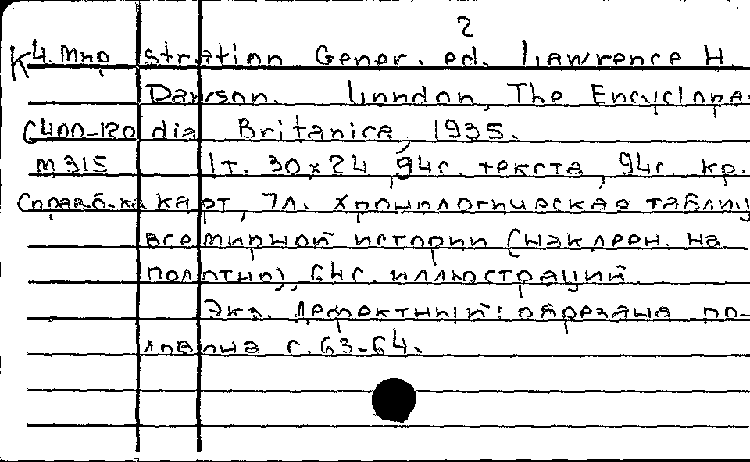 2
K4.Мир stration Gener. ed. Lawrence H.
Dawson. London, The Encyclope-
С400-120 dia Britanica, 1935.
М315 1т. 30x24, 94с. текста, 94с. кр.
Справ.б-ка карт, 7л. хронологическая таблиц
всемирной истории (наклеен. на
полотно), 64с. иллюстраций.
Экз. дефектный: обрезана по-
ловина с. 63-64.